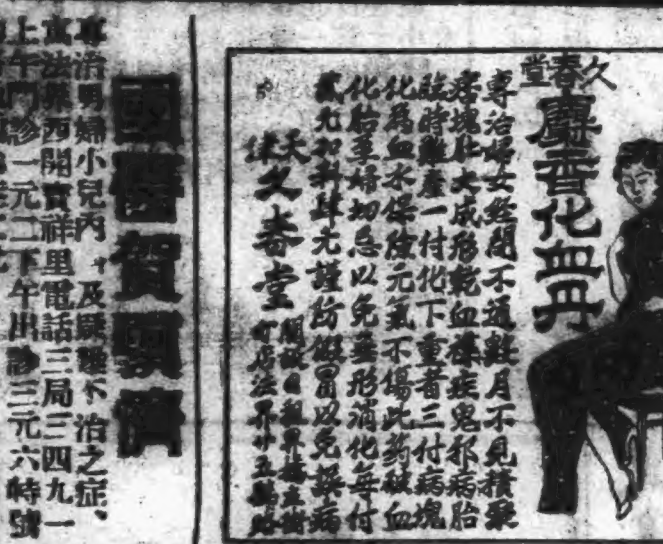 久春堂
麝香化血丹
專治婦女經閉不通數月不見積聚
痞塊肚大成形乾血癆疾鬼邪病胎
臨時難產一付化下重者三付病塊
化為血水保險元氣不傷此藥破血
化胎孕婦切忌以免無形消化每付
貳元加料肆元謹防假冒以免誤病
天津久春堂
開設日租界橋立街
分店法界廿五號路
國醫賀
專治男婦小兒內 及疑難不治之症、
寓法界西開寶祥里電話三局三四九一
上午門診一元二下午出診三元六時號